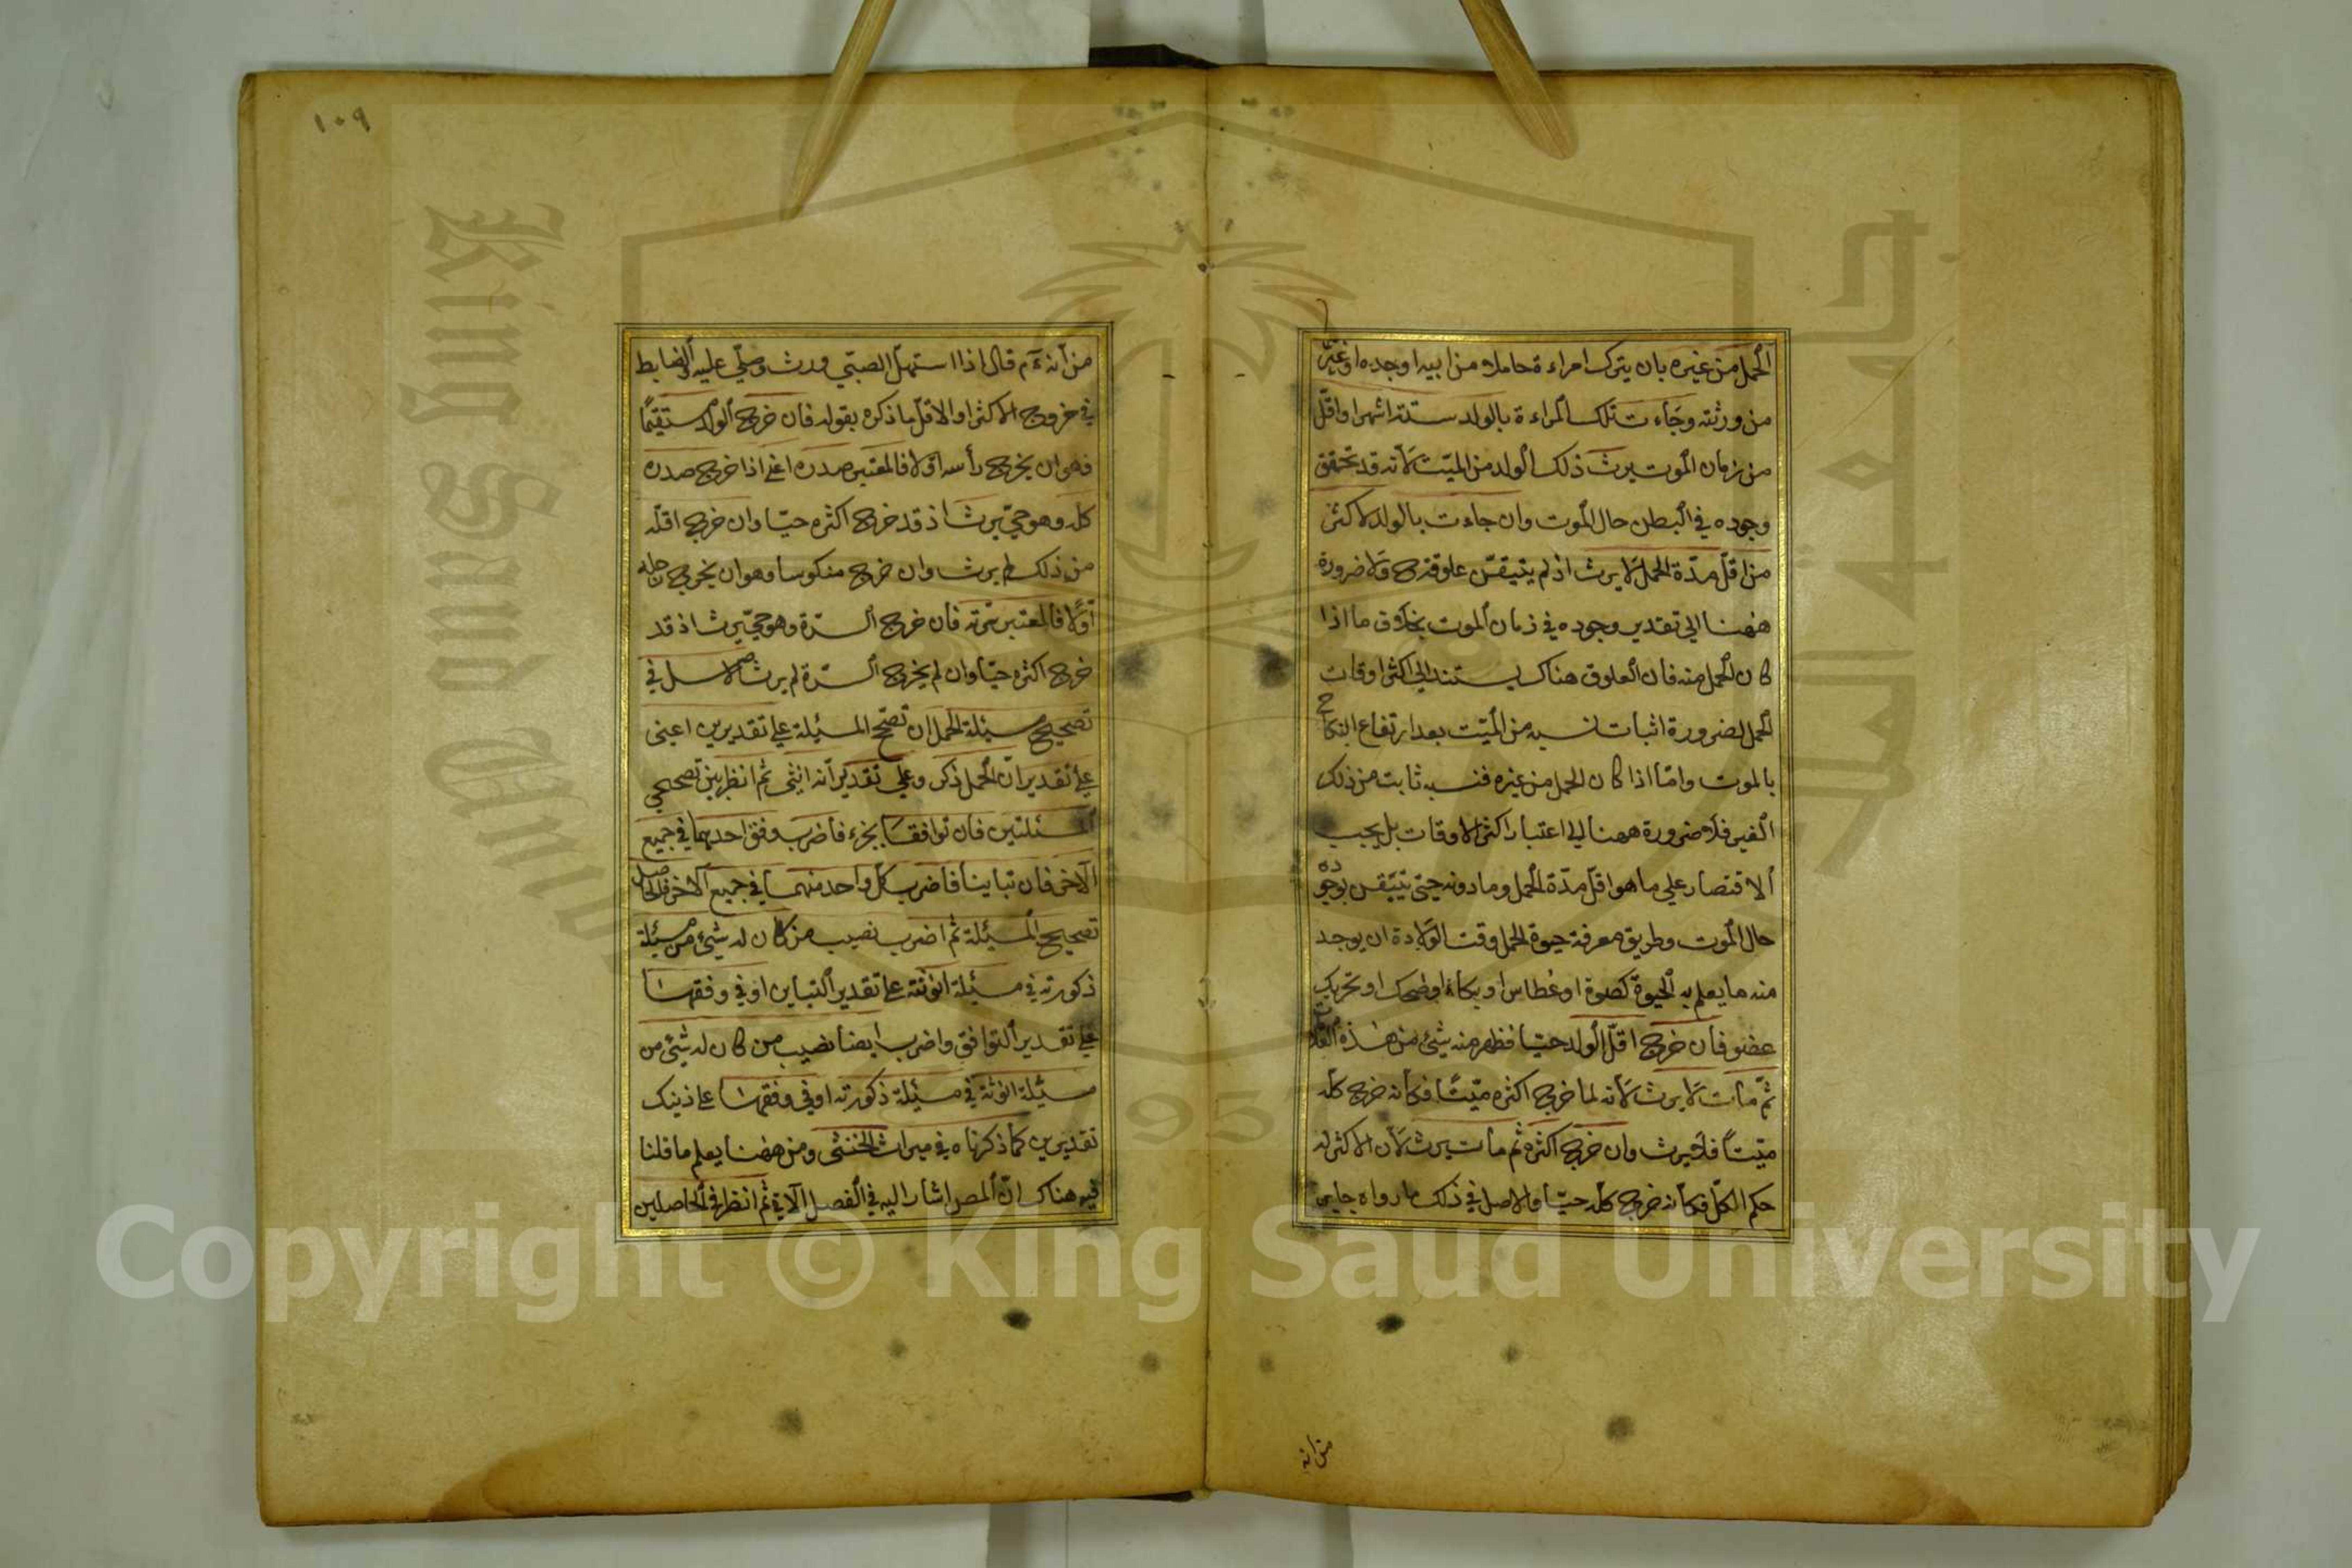 الحمل من غيره بان يترك امراءة حاملا من ابيه او جده او غيره
من ورثته وجاءت تلك المراءة بالولد ستة اشهر او اقل
من زمان الموت يرث ذلك الولد من الميت لانه قد تحقق
وجوده في البطن حال الموت وان جاءت بالولد لاكثر
من اقل مدة الحمل لا يرث اذ لم يتيقن علوقه ح ولا ضرورة
ههنا الى تقدير وجوده في زمان الموت بخلاف ما اذا
كان الحمل منه فان العلوق هناك يستند الى اكثر اوقات
الحمل لضرورة اثبات نسبه من الميت بعد ارتفاع النكاح
بالموت واما اذا كان الحمل من غيره فنسبه ثابت من ذلك
الغير فلا ضرورة ههنا الى اعتبار اكثر الاوقات بل يجب
الاقتصار على ما هو اقل مدة الحمل وما دونه حتى يتيقن بوجوده
حال الموت وطريق معرفة حيوة الحمل وقت الولادة ان يوجد
منه ما يعلم به الحيوة كصوة او عطاس او بكاء او ضحك او تحريك
عضو فان خرج اقل الولد حيا فظهر منه شئ من هذه العلامات
ثم مات لا يرث لانه لما خرج اكثره ميتا فكانه خرج كله
ميتا فلا يرث وان خرج اكثره ثم مات يرث لان الاكثر له
حكم الكل فكانه خرج كله حيا والاصل في ذلك ما رواه جابر
من انه
١٠٩
من انه ءم قال اذا استهل الصبي ورث وصلي عليه والضابط
في خروج الاكثر او الاقل ما ذكره بقوله فان خرج الولد مستقيما
فهو ان يخرج رأسه اولا فالمعتبر صدره اعني اذا خرج صدره
كله وهو حي يرث اذ قد خرج اكثره حيا وان خرج اقله
من ذلك لم يرث وان خرج منكوسا وهو ان يخرج رجله
اولا فالمعتبر سرته فان خرج السرة وهو حي يرث اذ قد
خرج اكثره حيا وان لم يخرج السرة لم يرث الاصل في
تصحيح مسئلة الحمل ان تصحح المسئلة على تقديرين اعنى
على تقدير ان الحمل ذكر وعلى تقدير انه انثى ثم انظر بين تصحيحي
المسئلتين فان توافقا بجزء فاضرب وفق احدهما في جميع
الآخر فان تباينا فاضرب كل واحد منهما في جميع الآخر فالحاصل
تصحيح المسئلة ثم اضرب نصيب من كان له شئ من مسئلة
ذكورته في مسئلة انوثته على تقدير التباين او في وفقها
على تقدير التوافق واضرب ايضا نصيب من كان له شئ من
مسئلة انوثة في مسئلة ذكورته او في وفقها على ذينك
تقديرين كما ذكرناه في ميراث الخنثى ومن ههنا يعلم ما قلنا
فيه هناك ان المص اشار اليه في الفصل الآتي ثم انظر في الحاصلين
Copyright © King Saud University